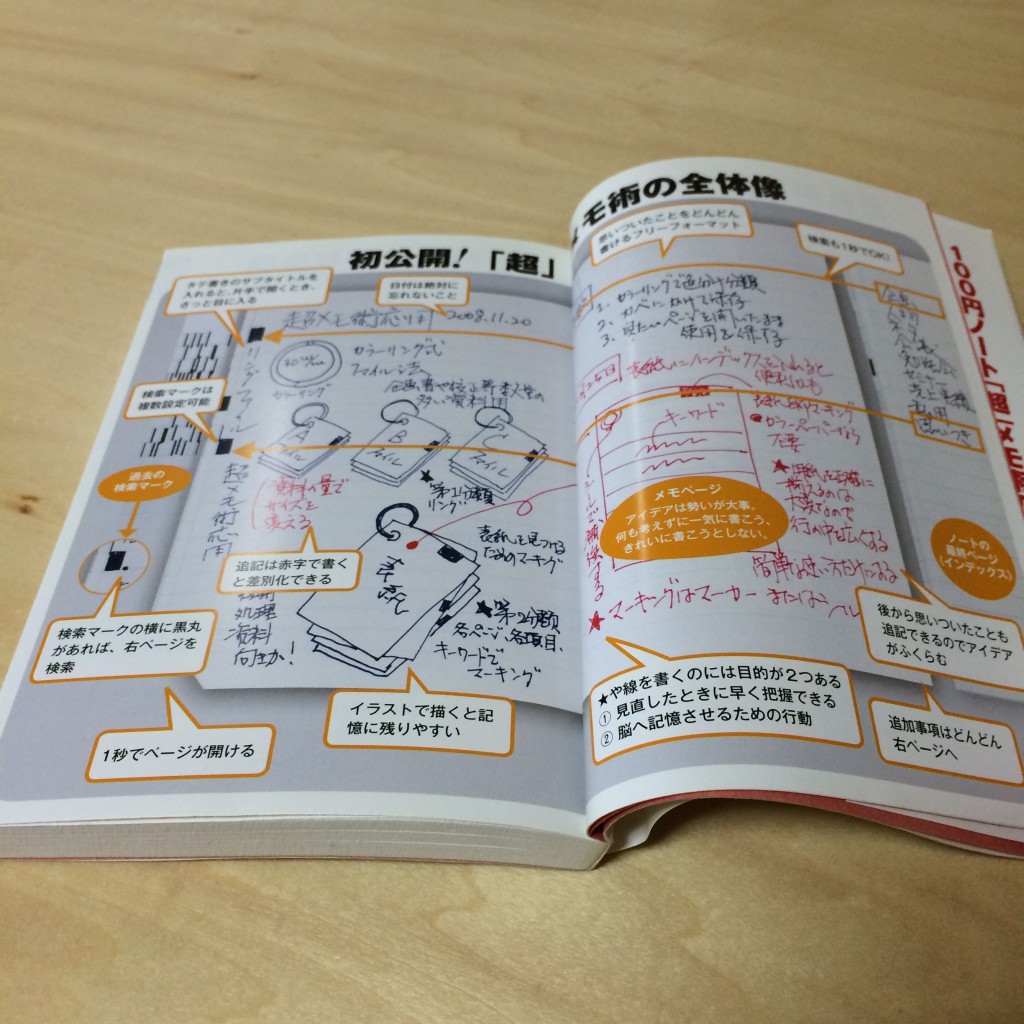 初公開！「超」
モ術の全体像
タテ書きのサブタイトルを
入れると、片手で開くとき、
さっと目に入る
日付は絶対に
忘れないこと
超メモ術応用 2008.11.20
リングファイル
カラーリング式
ファイル法
カラーリング
検索マークは
複数設定可能
過去の
検索マーク
A
ファイル
B
ファイル
C
ファイル
★第1分類
リング
資料の量で
サイズを
変える
追記は赤字で書く
と差別化できる
超メモ術応用
処理
資料
向きか！
表紙を見つける
ためのマーキング
★第2分類
各ページ、各項目、
キーワードで
マーキング
検索マークの横に黒丸
があれば、右ページを
検索
イラストで描くと記
憶に残りやすい
1秒でページが開ける
思いついたことをどんどん
書けるフリーフォーマット
検索も1秒でOK！
1. カラーリングで色分け分類
2. カベにかけて保存
3. 見たいページを開いたまま
使用を保存
表紙にインデックスを入れると
便利かも
キーワード
メモページ
アイデアは勢いが大事。
何も考えずに一気に書こう、
きれいに書こうとしない。
カラーペーパーなら
不要
★マーキングはマーカー または
★や線を書くのには目的が2つある
① 見直したときに早く把握できる
② 脳へ記憶させるための行動
後から思いついたことも
追記できるのでアイデア
がふくらむ
追加事項はどんどん
右ページへ
ノートの
最終ページ
(インデックス)
100円ノート「超」メモ